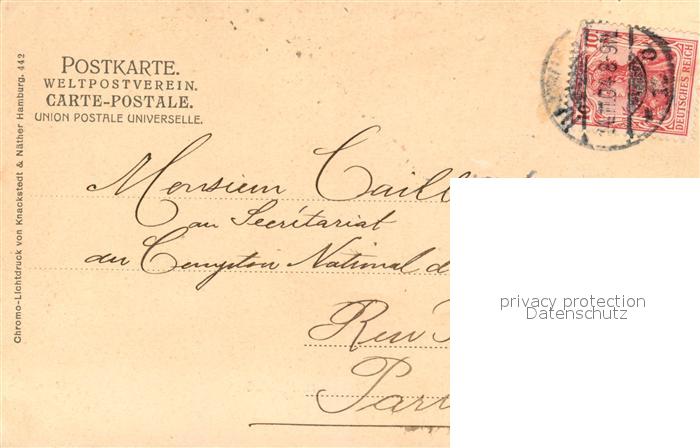 POSTKARTE.
WELTPOSTVEREIN.
CARTE-POSTALE.
UNION POSTALE UNIVERSELLE.
Chromo-Lichtdruck von Knackstedt & Näther Hamburg. 442
10
DEUTSCHES REICH
8-9N
Monsieur Caill
au Secrétariat
du Compton National d
Rue
Par
privacy protection
Datenschutz